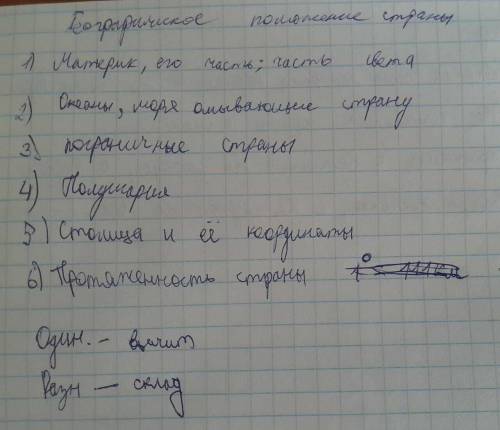 Географическое положение страны
1) Материк, его часть; часть света
2) Океаны, моря омывающие страну
3) пограничные страны
4) Полушария
5) Столица и её координаты
6) Протяженность страны 1° = 111км
Один. – вычит
Разн — склад